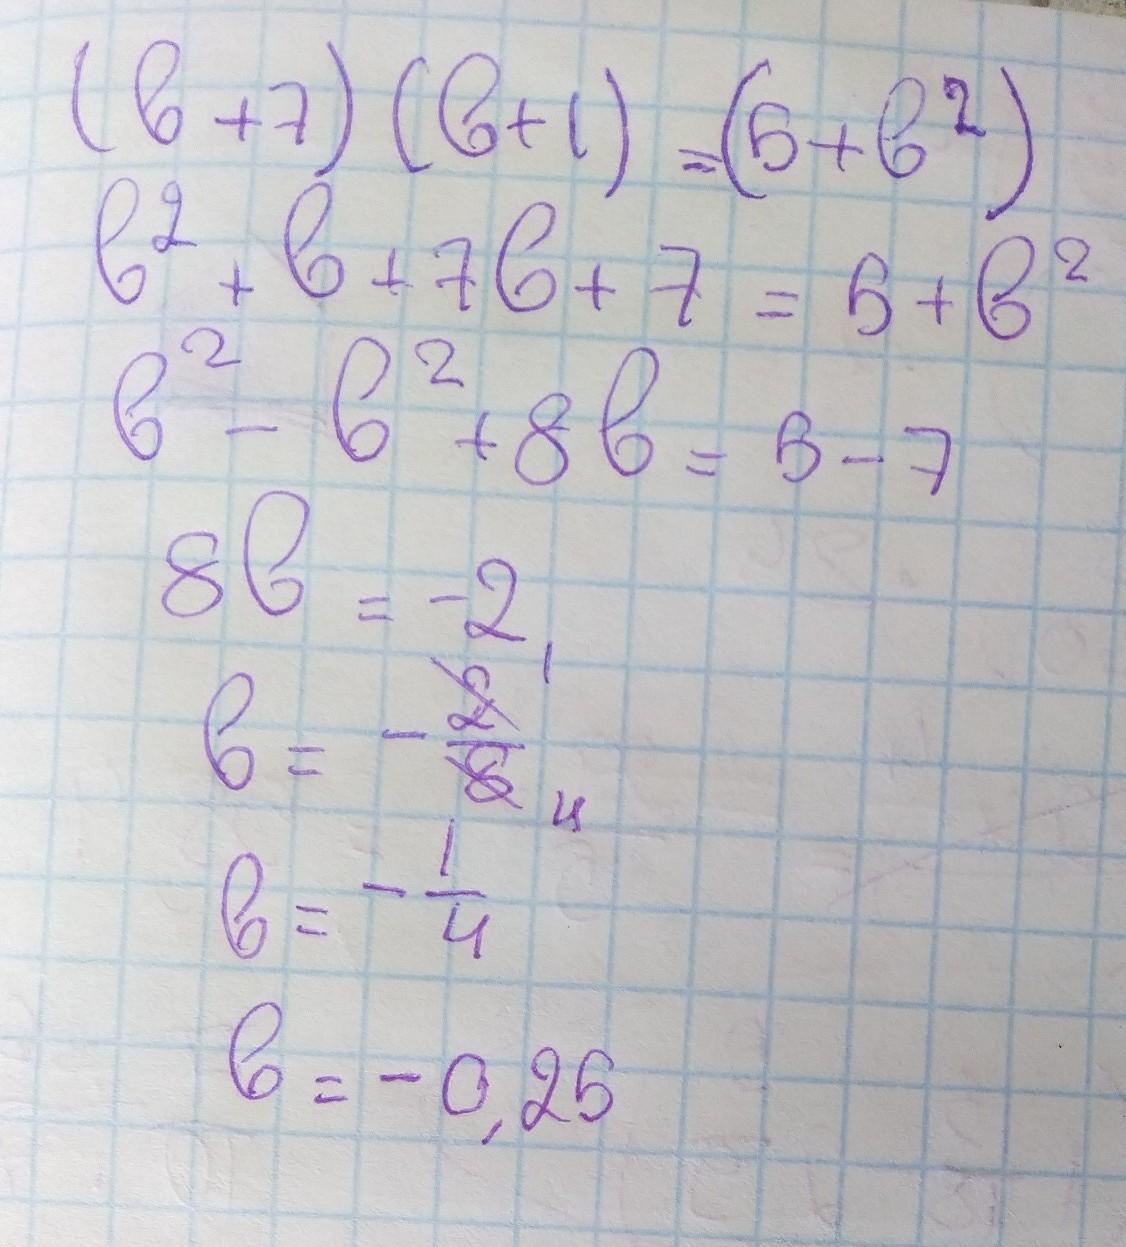 (в+7)(в+1)=(5+в²)
в²+в+7в+7=5+в²
в²-в²+8в=5-7
8в=-2
в=-2/8 1 4
в=-1/4
в=-0,25